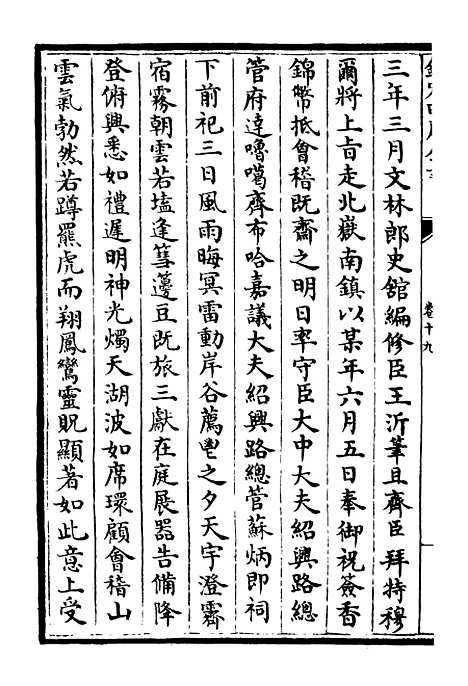 三年三月文林郎史舘編修臣王沂筆且齊臣拜特穆
爾將上㫖走北嶽南鎮以某年六月五日奉御祝簽香
錦幣抵會稽既齋之明日率守臣大中大夫紹興路總
管府達嚕噶齊布哈嘉議大夫紹興路總管蘇炳即祠
下前祀三日風雨晦冥雷動岸谷薦鬯之夕天宇澄霽
宿霧朝雲若壒逢篲籩豆既旅三獻在庭展器告備降
登俯興悉如禮遲明神光燭天湖波如席環顧會稽山
雲氣勃然若蹲羆虎而翔鳳鸞靈貺顯著如此意上受
卷十九